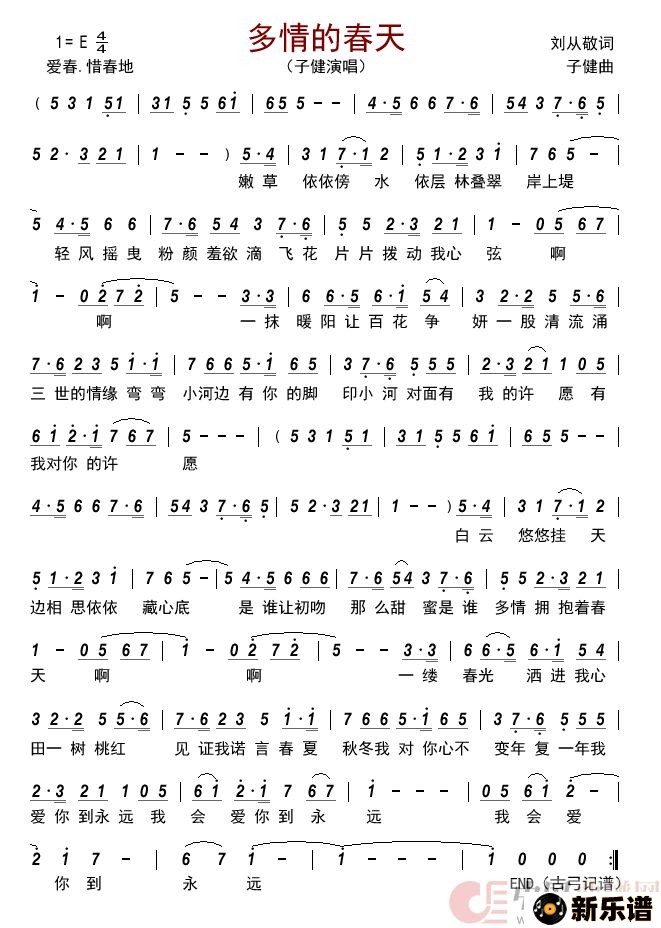 多情的春天
1= E 4/4
刘从敬词
爱春.惜春地
（子健演唱）
子健曲
( 5 3 1 51 | 31 5 5 61 | 65 5 - - | 4·5 6 6 7·6 | 54 3 7·6 5 |
5 2·3 21 | 1 - - ) 5·4 | 3 1 7·1 2 | 5 1·2 3 1 | 7 6 5 - |
嫩 草 依依傍 水 依层 林叠翠 岸上堤
5 4·5 6 6 | 7·6 54 3 7·6 | 5 5 2·3 21 | 1 - 05 67 |
轻 风 摇 曳 粉 颜 羞欲 滴 飞 花 片 片 拨 动 我心 弦 啊
1 - 02 72 | 5 - - 3·3 | 6 6·5 6·1 54 | 3 2·2 5 5·6 |
啊 一 抹 暖 阳 让 百 花 争 妍 一 股 清 流 涌
7·6 23 5 1·1 | 7·6 67 5·1 65 | 3 7·6 5 55 | 2·3 21 1 05 |
三 世的情缘 弯 弯 小河边 有 你 的脚 印小 河 对面有 我 的许 愿 有
61 2·1 7 67 | 5 - - - | ( 5 3 1 51 | 31 5 5 61 | 65 5 - - |
我对你 的许 愿
4·5 6 6 7·6 | 54 3 7·6 5 | 5 2·3 21 | 1 - - ) 5·4 | 3 1 7·1 2 |
白 云 悠悠挂 天
5 1·2 3 1 | 7 6 5 - | 54 5·6 6 6 | 7·6 54 3 7·6 | 5 5 2·3 21 |
边相 思依依 藏心底 是 谁让初吻 那 么甜 蜜是 谁 多情 拥 抱着春
1 - 05 67 | 1 - 02 72 | 5 - - 3·3 | 6 6·5 6·1 54 |
天 啊 啊 一 缕 春光 洒 进 我心
3 2·2 5 5·6 | 7·6 23 5 1·1 | 7·6 67 5·1 65 | 3 7·6 5 55 |
田一 树 桃红 见 证我诺 言 春 夏 秋冬我 对 你心不 变年 复 一年我
2·3 21 1 05 | 61 2·1 7 67 | 1 - - - | 05 61 - - |
爱 你 到永 远 我 会 爱 你 到 永 远 我 会 爱
2 1 7 - | 6 7 1 - | 1 - - - | 1 0 0 0 :|
你 到 永 远 END（古弓记谱）
新乐谱